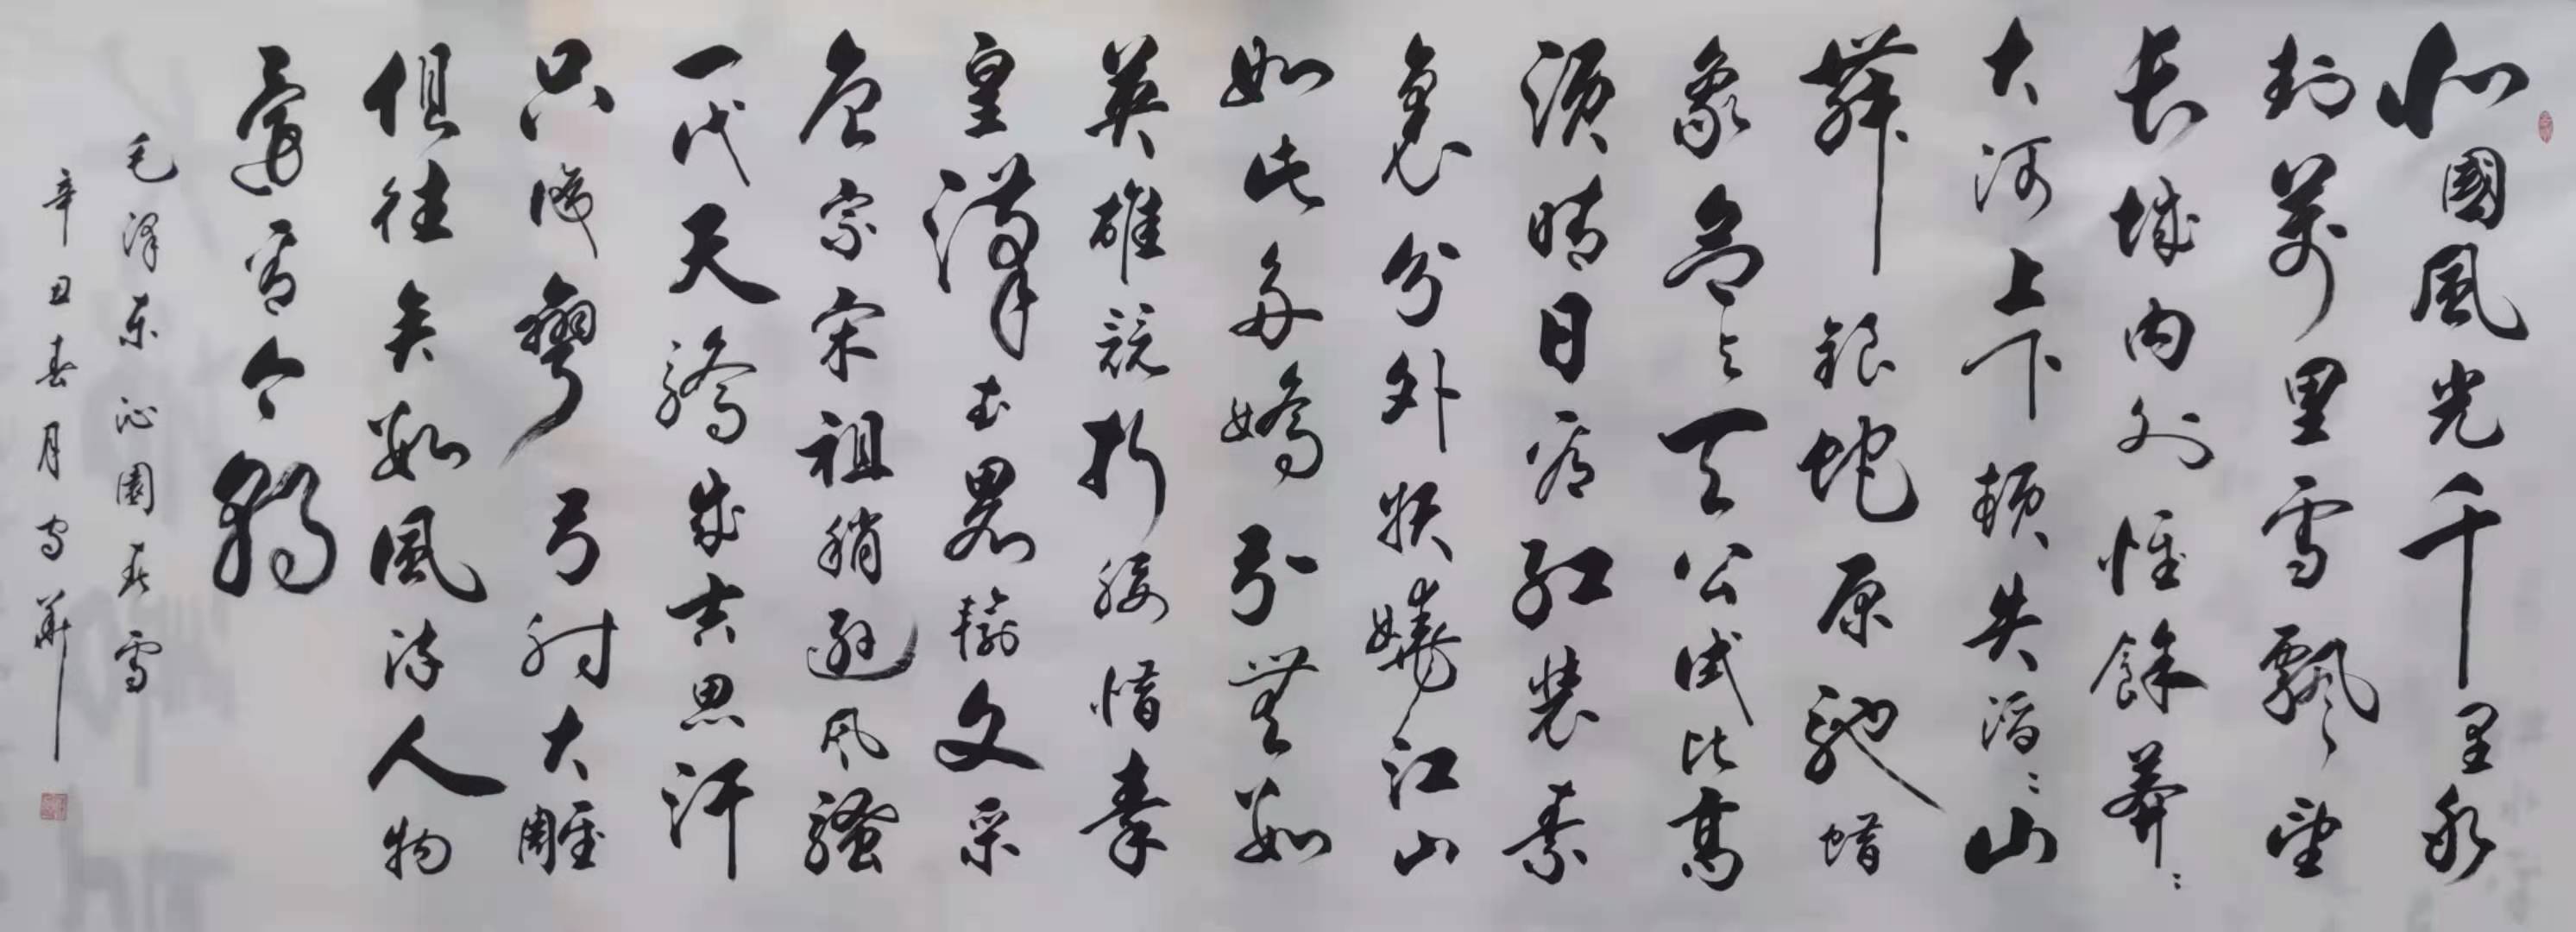 北國風光千里冰
封萬里雪飄望
长城内外惟餘莽〻
大河上下頓失滔〻山
舞銀蛇原馳蜡
象欲与天公試比高
須晴日看红装素
裹分外妖嬈江山
如此多嬌引無數
英雄競折腰惜秦
皇漢武略輸文采
唐宗宋祖稍遜风騷
一代天驕成吉思汗
只識彎弓射大雕
俱往矣數風流人物
還看今朝
毛澤东沁園春雪
辛丑春月